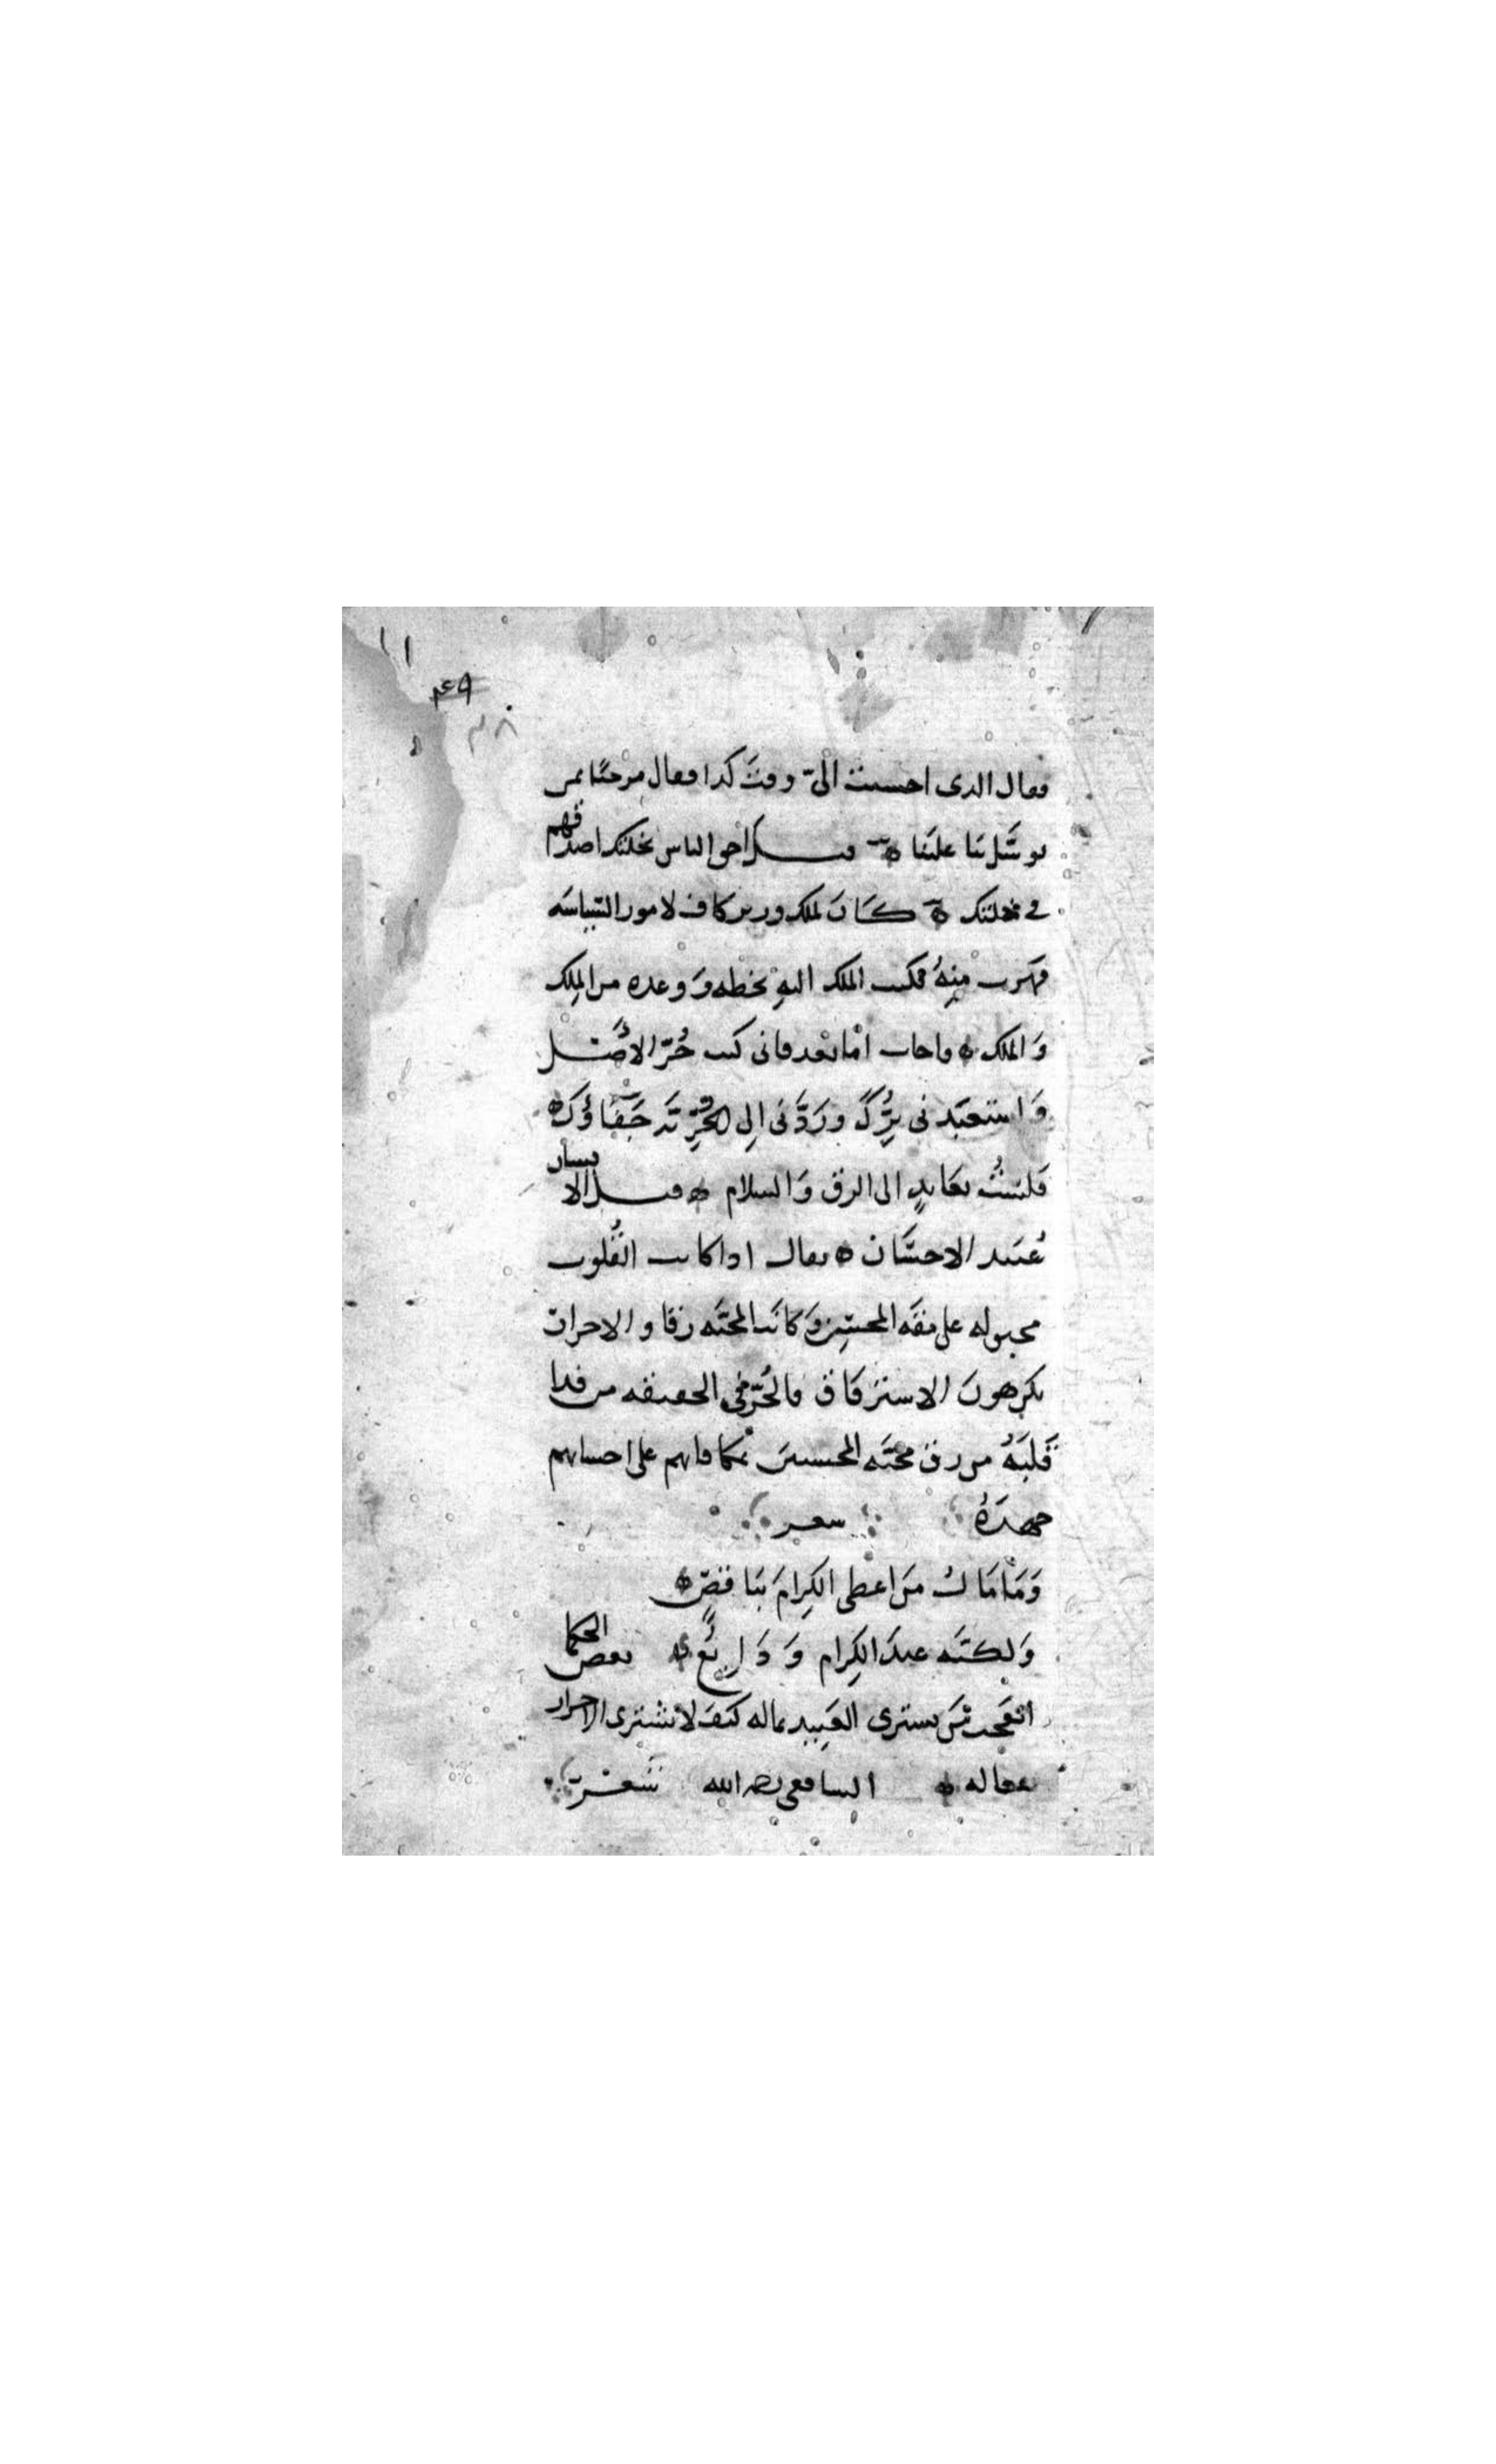 ٤٩
٣٨
فقال الذى احسنت الىّ وقتَ كذا فقال مرحبًا بمن
توسَّل بنا علينا ه قيل احق الناس بخلتك اصدقهم
فى خلتك ه كَانَ لملك وزير كاف لامور السّياسَه
فهَرب منِهُ فكتب الملك اليهِ بخطه وَوعده من المِلك
وَالملك ه فاجاب امّا بَعد فانى كنت حُرّ الأصْل
وَاستعبَدنى بِرُّكَ ورَدَّنى اِلى الحُرِّيَّة جَفَاؤُكَ ه
فَلسْتُ بعَايدٍ الى الرق وَالسلام ه قيل الانسان
عَبيد الاحسَان ه يقال اذا كانت القُلوب
مجبوله على مقَه المحسِنِ وَكانَت المحبَّه رقا والاحرار
يكرهونَ الاسترقاق فالحُرّ فى الحقيقه من فدا
قَلبَهُ من رق محبَّه المحسنينَ بمكافاتهم على احسانهم
جهدَهُ شعر
وَمَا مَالُ مَن اعطى الكِرامَ بنَاقصٍ ه
وَلكنَّه عندَ الكِرام وَدَايعُ ه بعض الحكما
اتعَجبُ مَن يشترى العَبيد بماله كيفَ لا يشترى الاحرار
بفعاله ه الشافعى رحمه الله شعر